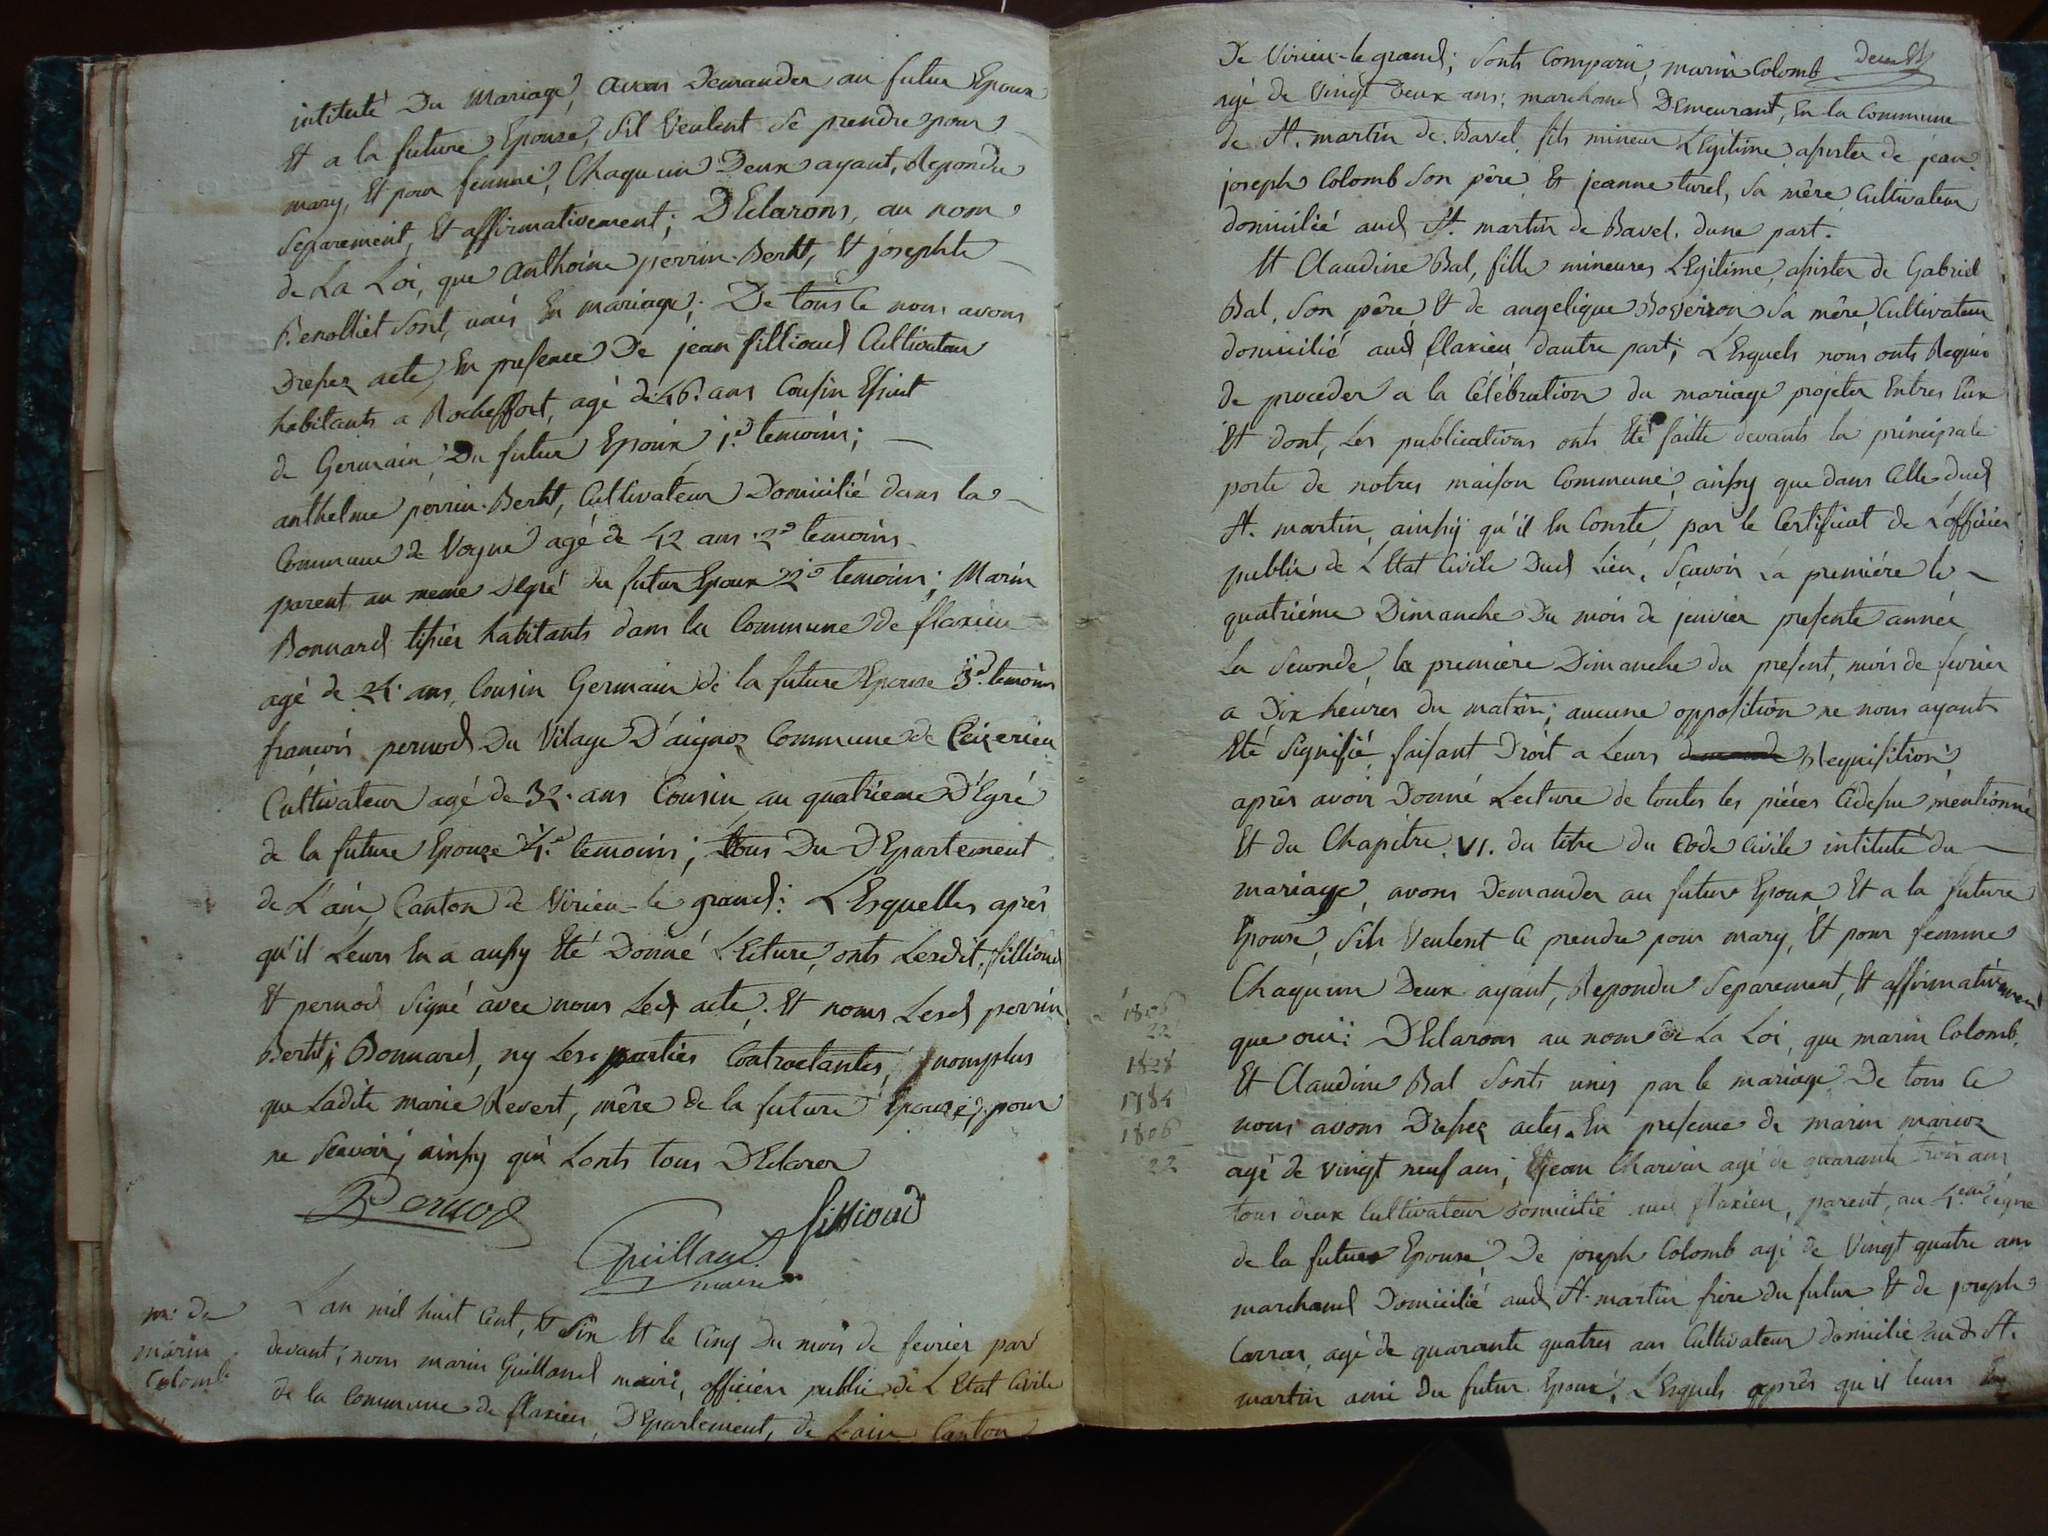 intitulé Du Mariage, avons Demander au futur Epoux
Et a la future Epouse, sil Veulent Se prendre pour
mary, Et pour femme, Chaqu'un Deux ayant, Repondu
Separement, Et affirmativement; DEclarons, au nom
de La Loi, que Anthoine perrin-Bertt, Et josephte
Benolliet Sont, unis En mariage; De tous Ce nous avons
Dresez acte, En presence De jean fillioud Cultivateur
habitants a Rocheffort, agé de 46. ans Cousin Issut
de Germain Du futur Epoux 1.er temoins;
anthelme perrin-Bertt, Cultivateur Domicilié dans la
Commune de Vogne agé de 42 ans 2.e temoins
parent au meme Degré du futur Epoux 2.e temoins; Marin
Bonnard tissier habitants dans la Commune de flaxieu
agé de 24. ans, Cousin Germain de la future Epouse 3.e temoins
francois pernod Du Vilage D'aignoz Commune de Ceizerieu
Cultivateur agé de 32. ans Cousin au quatrieme DEgré
de la future Epouze 4.e temoins; tous Du DEpartement
de L'ain, Canton de Virieu-le grand: LEsquelles aprês
qu'il Leurs En a aussy Eté Donné LEcture, onts Lesdit. fillioud
Et pernod Signé avec nous Led acte. Et nonns Lesd perrin
Bertt; Bonnard, ny Les parties Contractantes, nomplus
que Ladite marie Revert, mêre de la future Epouze; pour
ne Scavoir; ainsy qui Lonts tous DEclarer
Pernod
fillioud
Guilland
maire
m: de
marin
Colomb
Lan mil huit Cent, Et Six Et le Cinq Du mois de fevrier par
devant; nous marin Guilland maire, officier public de L'Etat Civile
de la Commune de flaxieu, DEpartement, de Lain, Canton
De Virieu-le grand; Sonts Comparu, marin Colomb
agé de Vingt Deux ans; marchand DEmeurant, En la Commune
de St. martin de. Bavel, fils mineur LEgitime, assister de jean
joseph Colomb Son pêre Et jeanne turel, Sa mêre Cultivateur
domicilié aud St. martin de Bavel. dune part.
Et Claudine Bal, fille mineures LEgitime, assister de Gabriel
Bal, Son pêre Et de angelique Sa mêre, Cultivateur
domicilié aud flaxieu, dautre part; LEsquels nous onts Requis
de proceder a la Célébration du mariage projeter Entres Eux
Et dont, Les publications onts Eté faitte devants la principale
porte de notres maison Commune, ainsy que dans Celle dud
St. martin, ainsy qu'il En Conste, par le Certificat de L'officier
public de L'Etat Civile Dud Lieu, Sçavoir La premiére le
quatriéme Dimanche Du mois de jenvier presente année,
La Seconde, le premiere Dimanche du present, mois de fevrier
a Dix heures du matin; aucune opposition ne nous ayant
Eté Signifié, faisant Droit a Leurs Requisition,
aprês avoir Donné Lecture de toutes les piéces Cidessu mentionné
Et du Chapitre. VI. du titre du Code Civile intitulé du
mariage, avons Demander au futur Epoux, Et a la future
Epouse, Sils Veulent Ce prendre pour mary, Et pour femme
Chaqu'un Deux ayant, Repondu Separement, Et affirmativement
que oui: DEclarons au nom de La Loi, que marin Colomb.
Et Claudine Bal Sonts unis par le mariage De tous Ce
nous avons Dresez actes. En presence de marin marioz
agé de vingt neuf ans; Et jean Charvin agé de quarante trois ans,
tous deux Cultivateur domicilié aud flaxieu, parent, au 4.eme dégré
de la future Epouse, De joseph Colomb agé de Vingt quatre ans
marchand Domicilié aud St. martin frére du futur Et de joseph
Carrar, agé de quarante quatres ans Cultivateur domicilié aud St.
martin ami Du futur Epoux, LEsquels aprês qu'il leurs En
1806
22
1828
1784
1806
22